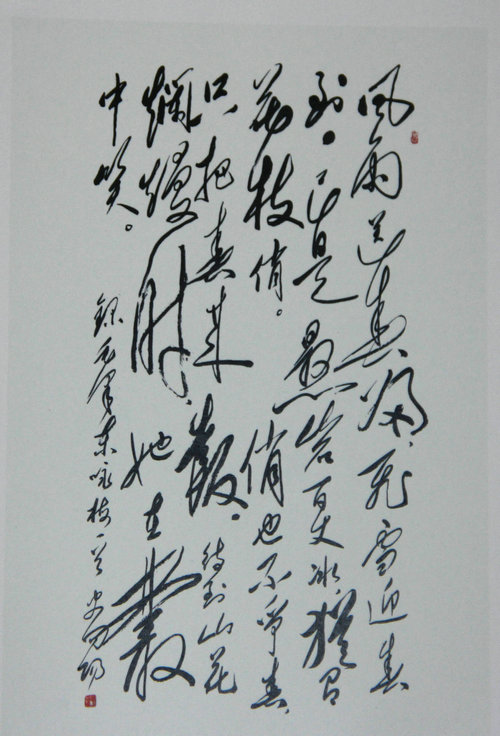 风雨送春归，飞雪迎春
到。已是悬岩百丈冰，犹有
花枝俏。俏也不争春，
只把春来报。待到山花
烂熳时，她在丛
中笑。
录毛泽东咏梅一首